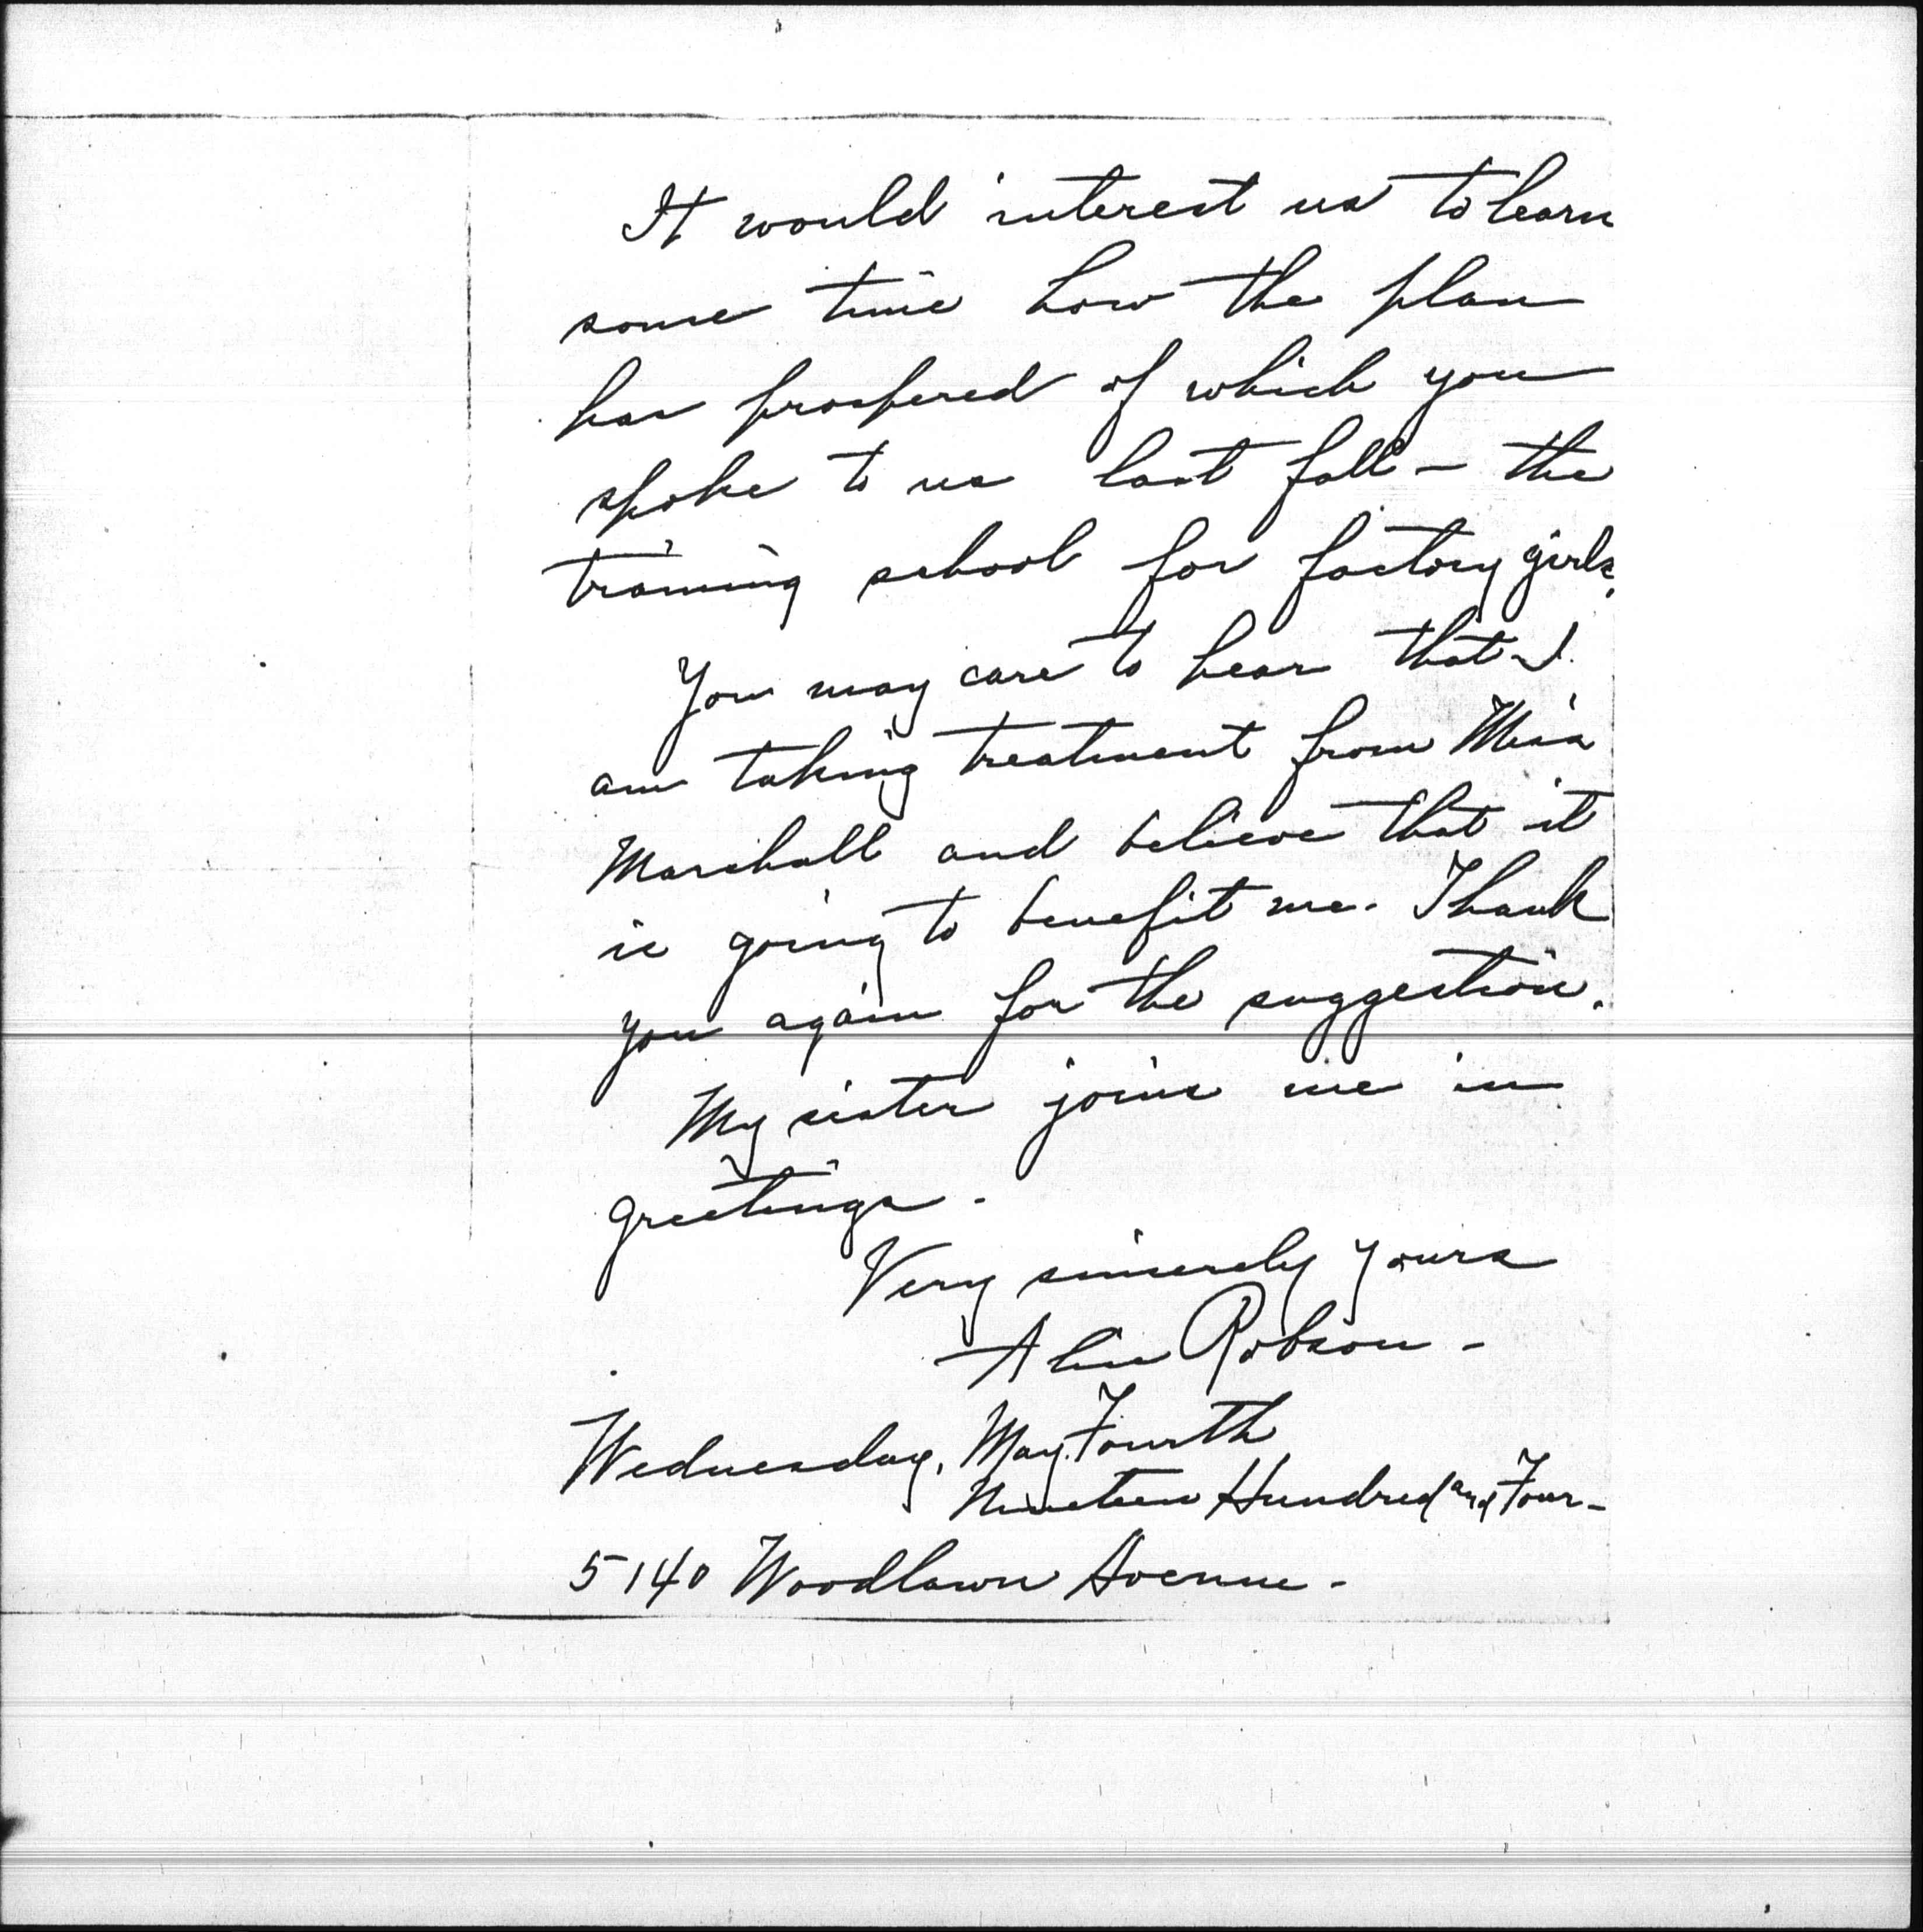 It would interest us to learn
some time how the plan
has prospered of which you
spoke to us last fall - the
training school for factory girls.
You may care to hear that I
am taking treatment from Miss
Marshall and believe that it
is going to benefit me. Thank
you again for the suggestion.
My sister joins me in
greetings.
Very sincerely yours
Robson -
Wednesday, May Fourth
Nineteen Hundred and Four -
5140 Woodlawn Avenue -